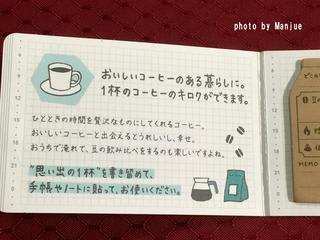 photo by Manjue
おいしいコーヒーのある暮らしに。
1杯のコーヒーのキロクができます。
ひとときの時間を贅沢なものにしてくれるコーヒー。
おいしいコーヒーと出会えるとうれしいし、幸せ。
おうちで淹れて、豆の飲み比べをするのも楽しいですよね。
"思い出の1杯"を書き留めて、
手帳やノートに貼って、お使いください。
MEMO